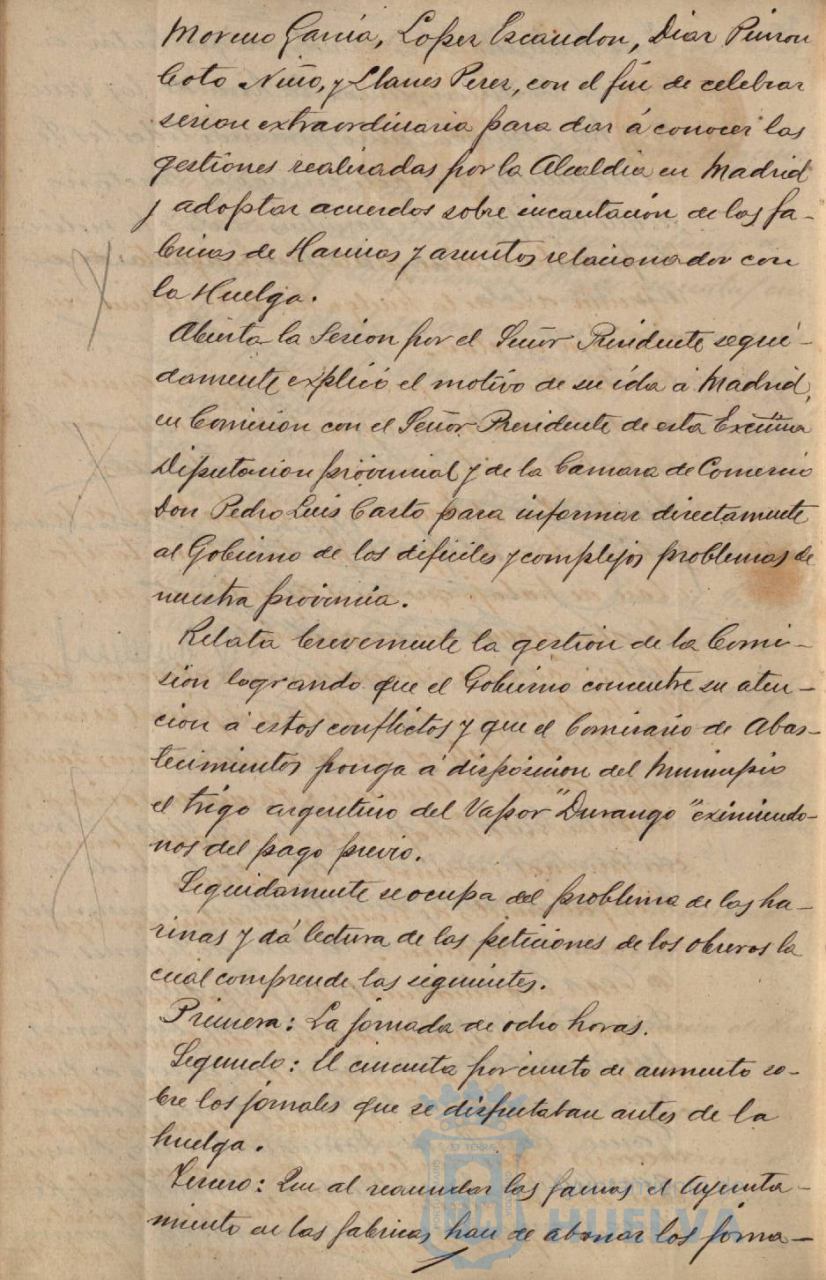 Moreno García, Lopez Escandon, Diaz Pinzon
Coto Niño, y Llanes Perez, con el fin de celebrar
sesion extraordinaria para dar á conocer las
gestiones realizadas por la Alcaldia en Madrid
y adoptar acuerdos sobre incautación de las fa-
bricas de Harinas y asuntos relacionados con
la Huelga.
Abierta la Sesion por el Señor Presidente segui-
damente explicó el motivo de su ida á Madrid,
en Comision con el Señor Presidente de esta Excma
Diputacion provincial y de la Camara de Comercio
Don Pedro Luis Casto para informar directamente
al Gobierno de los dificiles y complejos problemas de
nuestra provincia.
Relata brevemente la gestión de la Comi-
sión logrando que el Gobierno concentre su aten-
cion á estos conflictos y que el Comisario de Abas-
tecimientos ponga á disposicion del Municipio
el trigo argentino del Vapor "Durango" eximiendo-
nos del pago previo.
Seguidamente se ocupa del problema de las ha-
rinas y dá lectura de las peticiones de los obreros la
cual comprende las siguientes.
Primera: La jornada de ocho horas.
Segundo: El cincuenta por ciento de aumento so-
bre los jornales que se disfrutaban antes de la
huelga.
Tercero: Que al reanudar las faenas el Ayunta-
miento en las fabricas, han de abonar los jorna-
HUELVA